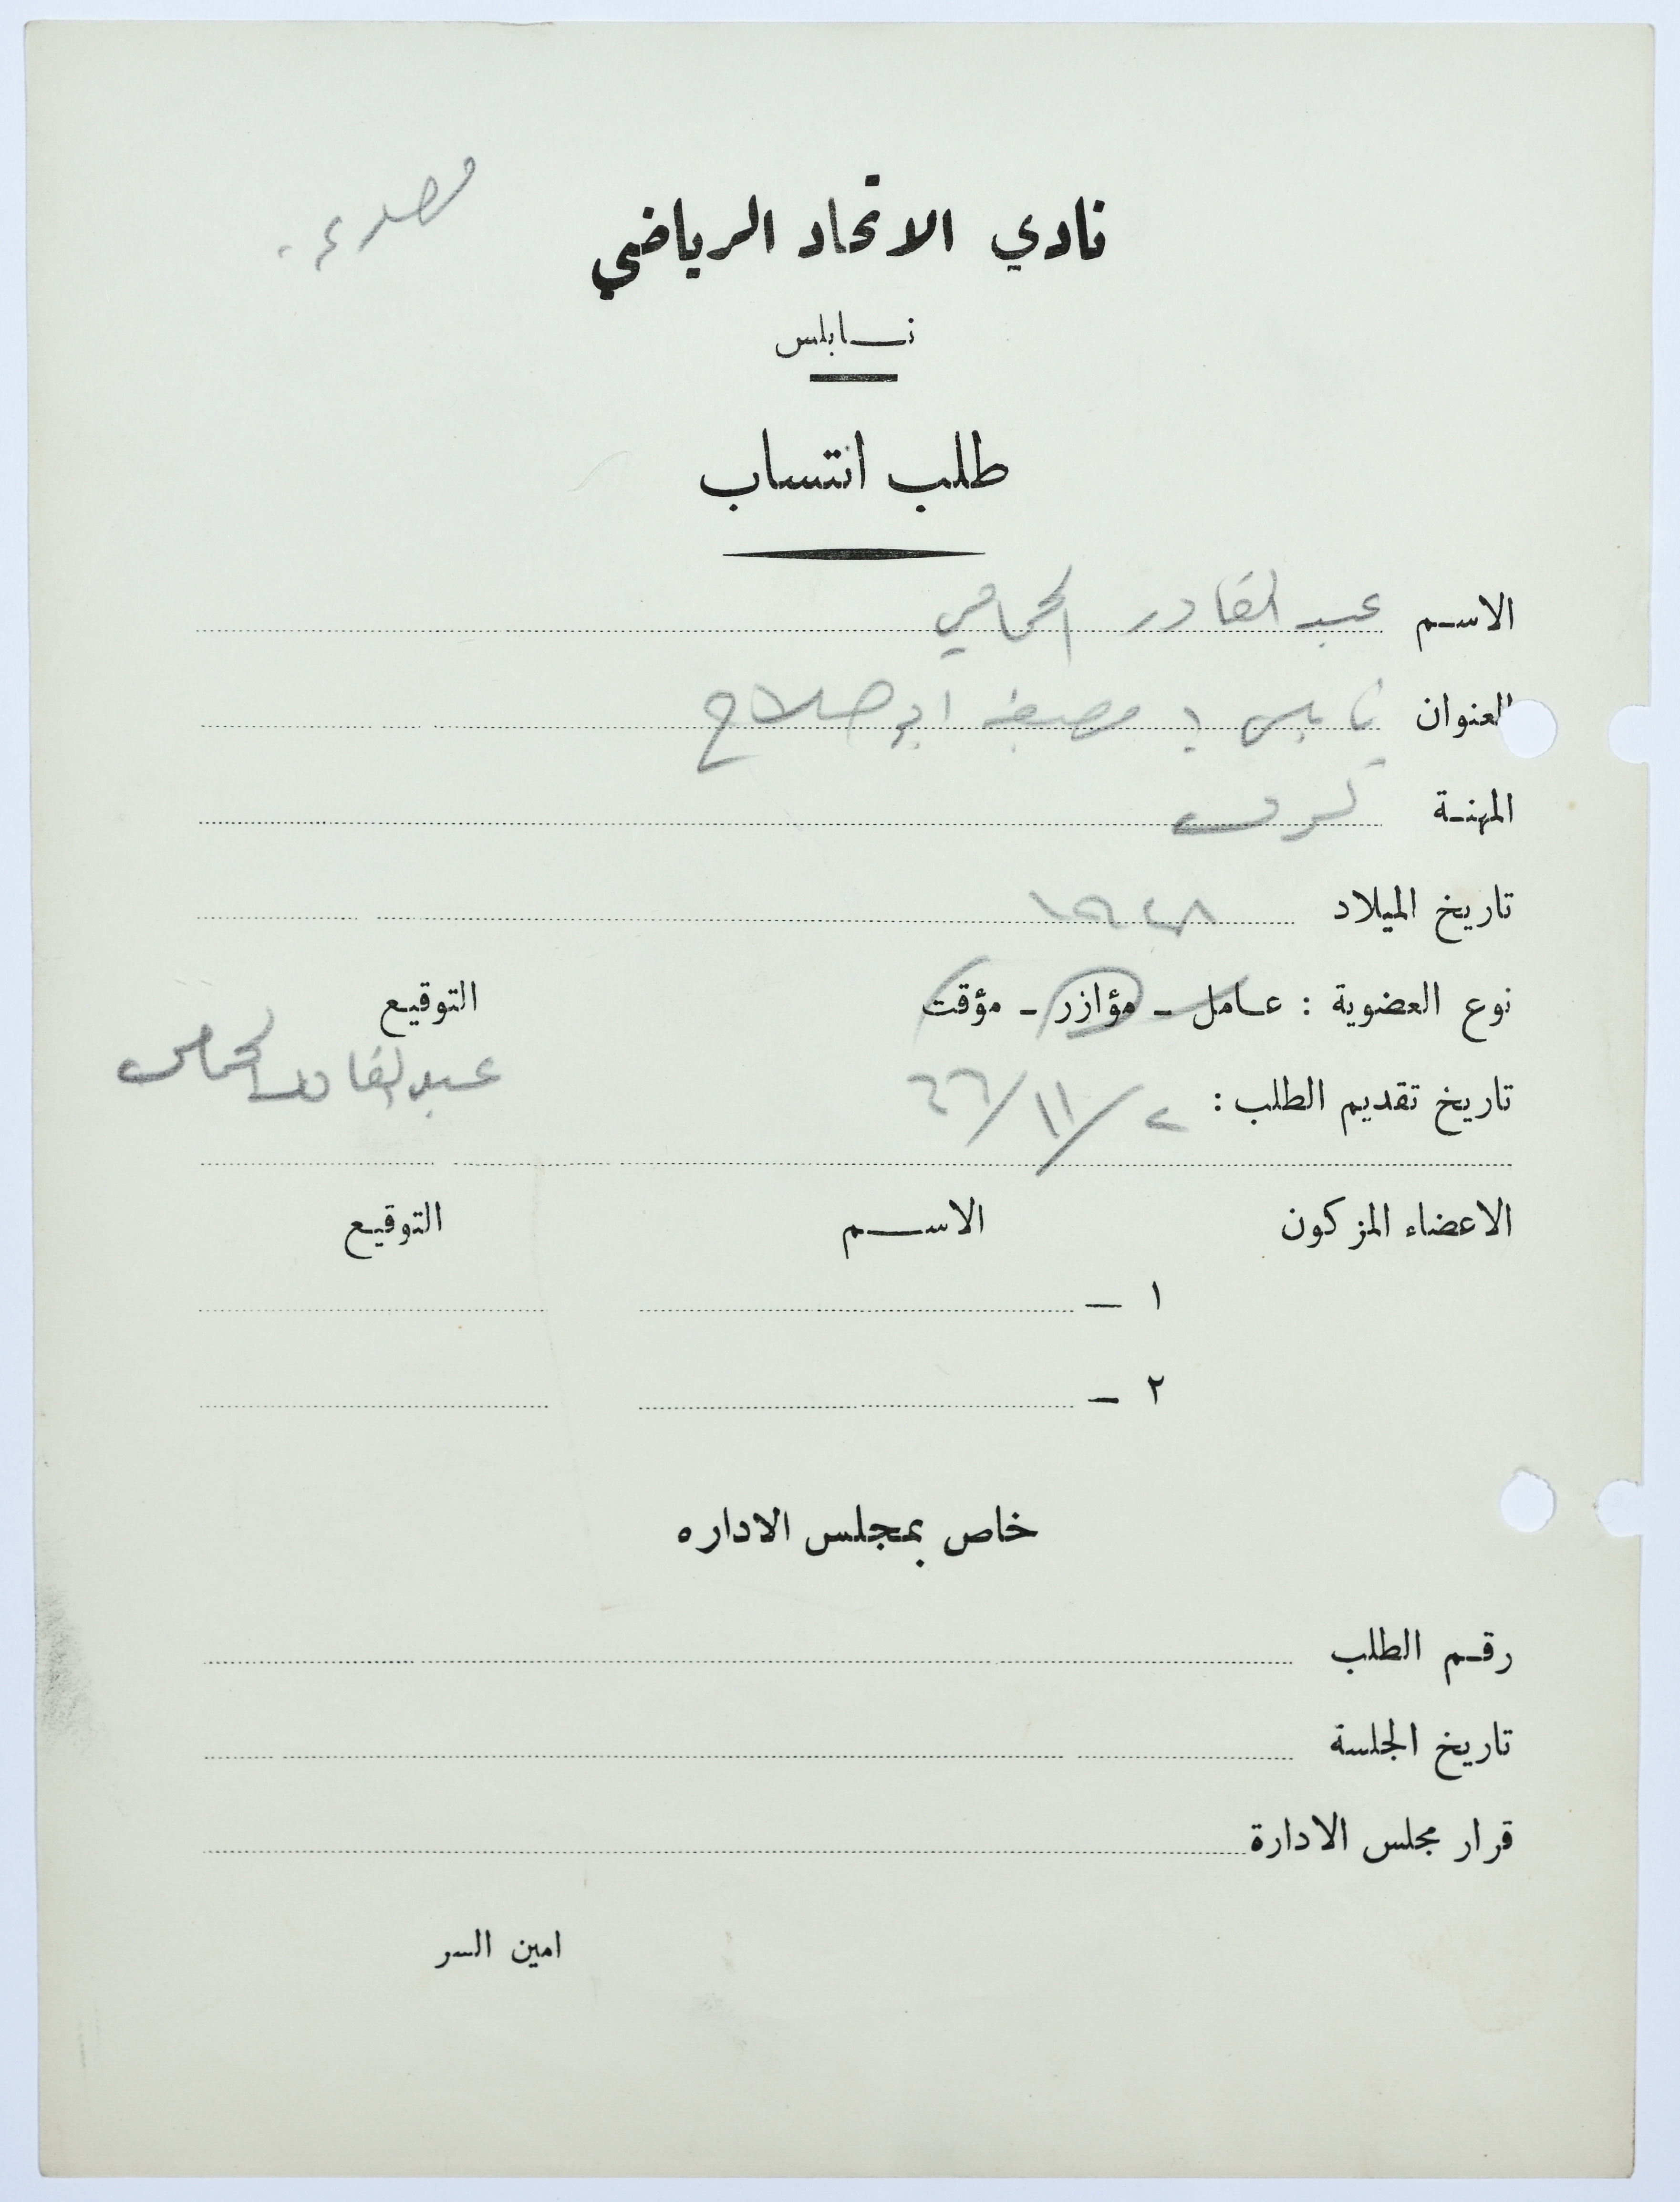 نادي الاتحاد الرياضي
نابلس
طلب انتساب
الاسم عبد القادر الحمامي
العنوان نابلس مصبغة ابو صلاح
المهنة
تاريخ الميلاد ١٩٤٨
نوع العضوية : عامل - مؤازر - مؤقت التوقيع
عبد القادر الحمامي
تاريخ تقديم الطلب : ٢ / ١١ / ٦٦
الاعضاء المزكون الاسم التوقيع
١ -
٢ -
خاص بمجلس الاداره
رقم الطلب
تاريخ الجلسة
قرار مجلس الادارة
امين السر